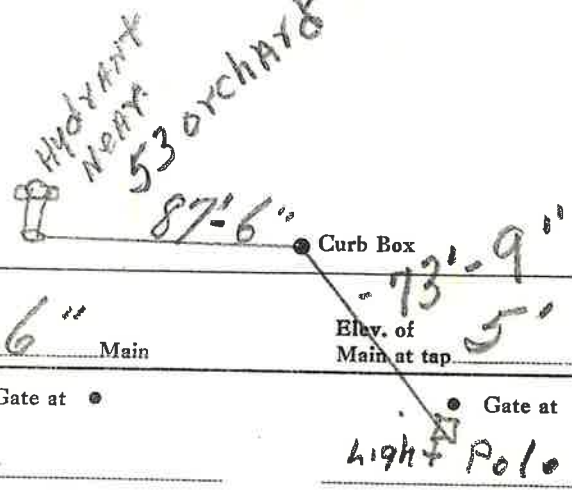 Hydrant
Near
53 orchard
87'-6"
Curb Box
- 73'-9"
6" Main
Elev. of
Main at tap 5'
Gate at
Gate at
Light Pole